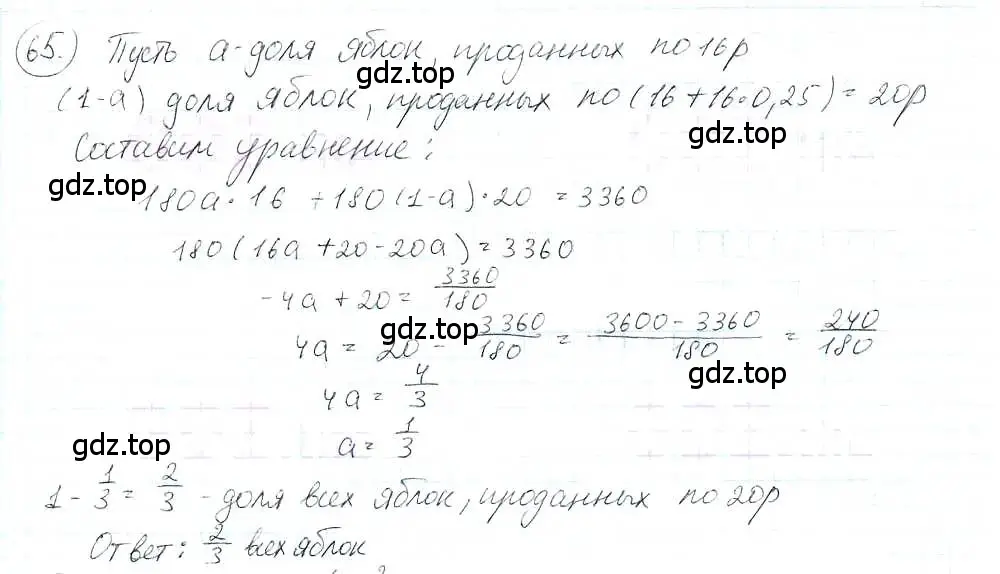 65. Пусть a-доля яблок, проданных по 16р
(1-a) доля яблок, проданных по (16+16·0,25)=20р
gdz.top
Составим уравнение:
gdz.top
180a·16 +180(1-a)·20 = 3360
180(16a+20-20a)=3360
-4a+20= 3360/180
gdz.top
4a = 20 - 3360/180 = 3600-3360/180 = 240/180
gdz.top
4a = 4/3
a= 1/3
gdz.top
gdz.top
1- 1/3 = 2/3 - доля всех яблок, проданных по 20р
Ответ: 2/3 всех яблок